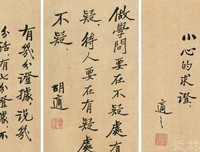 小心的求證
適之
做學問要在不疑處有
疑待人要在有疑處
不疑
胡適
有幾分證據說幾
分話有七分證據不